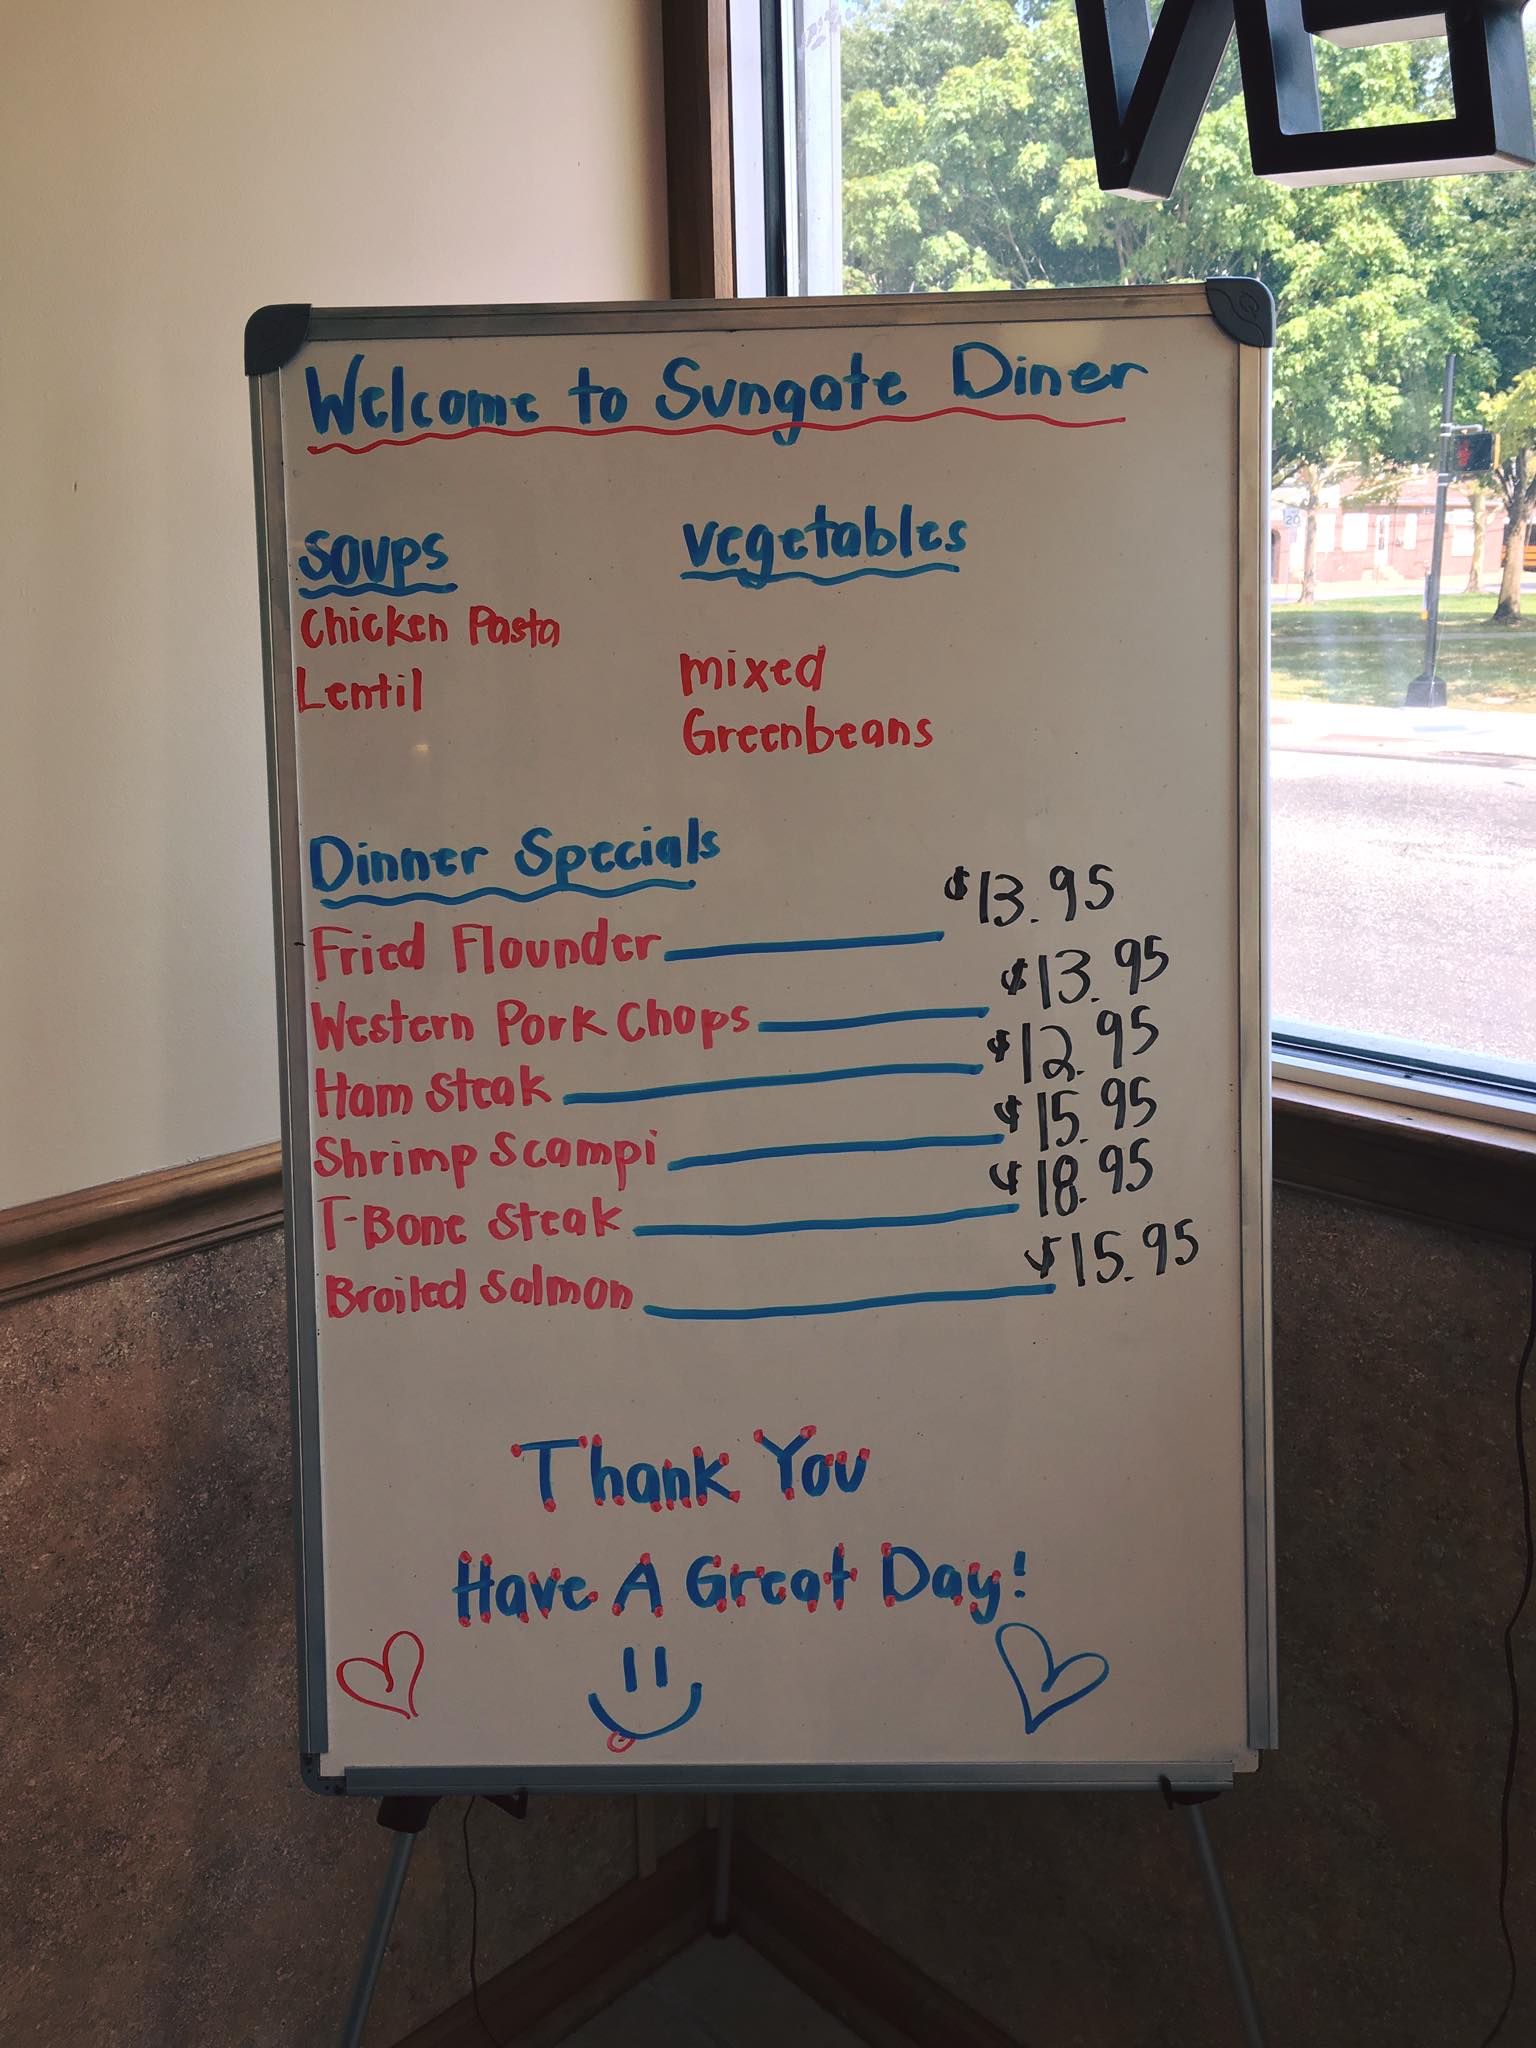 Welcome to Sungate Diner
Soups
Chicken Pasta
Lentil
Vegetables
mixed
Greenbeans
Dinner Specials
Fried Flounder $13.95
Western Pork Chops $13.95
Ham Steak $12.95
Shrimp Scampi $15.95
T-Bone Steak $18.95
Broiled Salmon $15.95
Thank You
Have A Great Day!